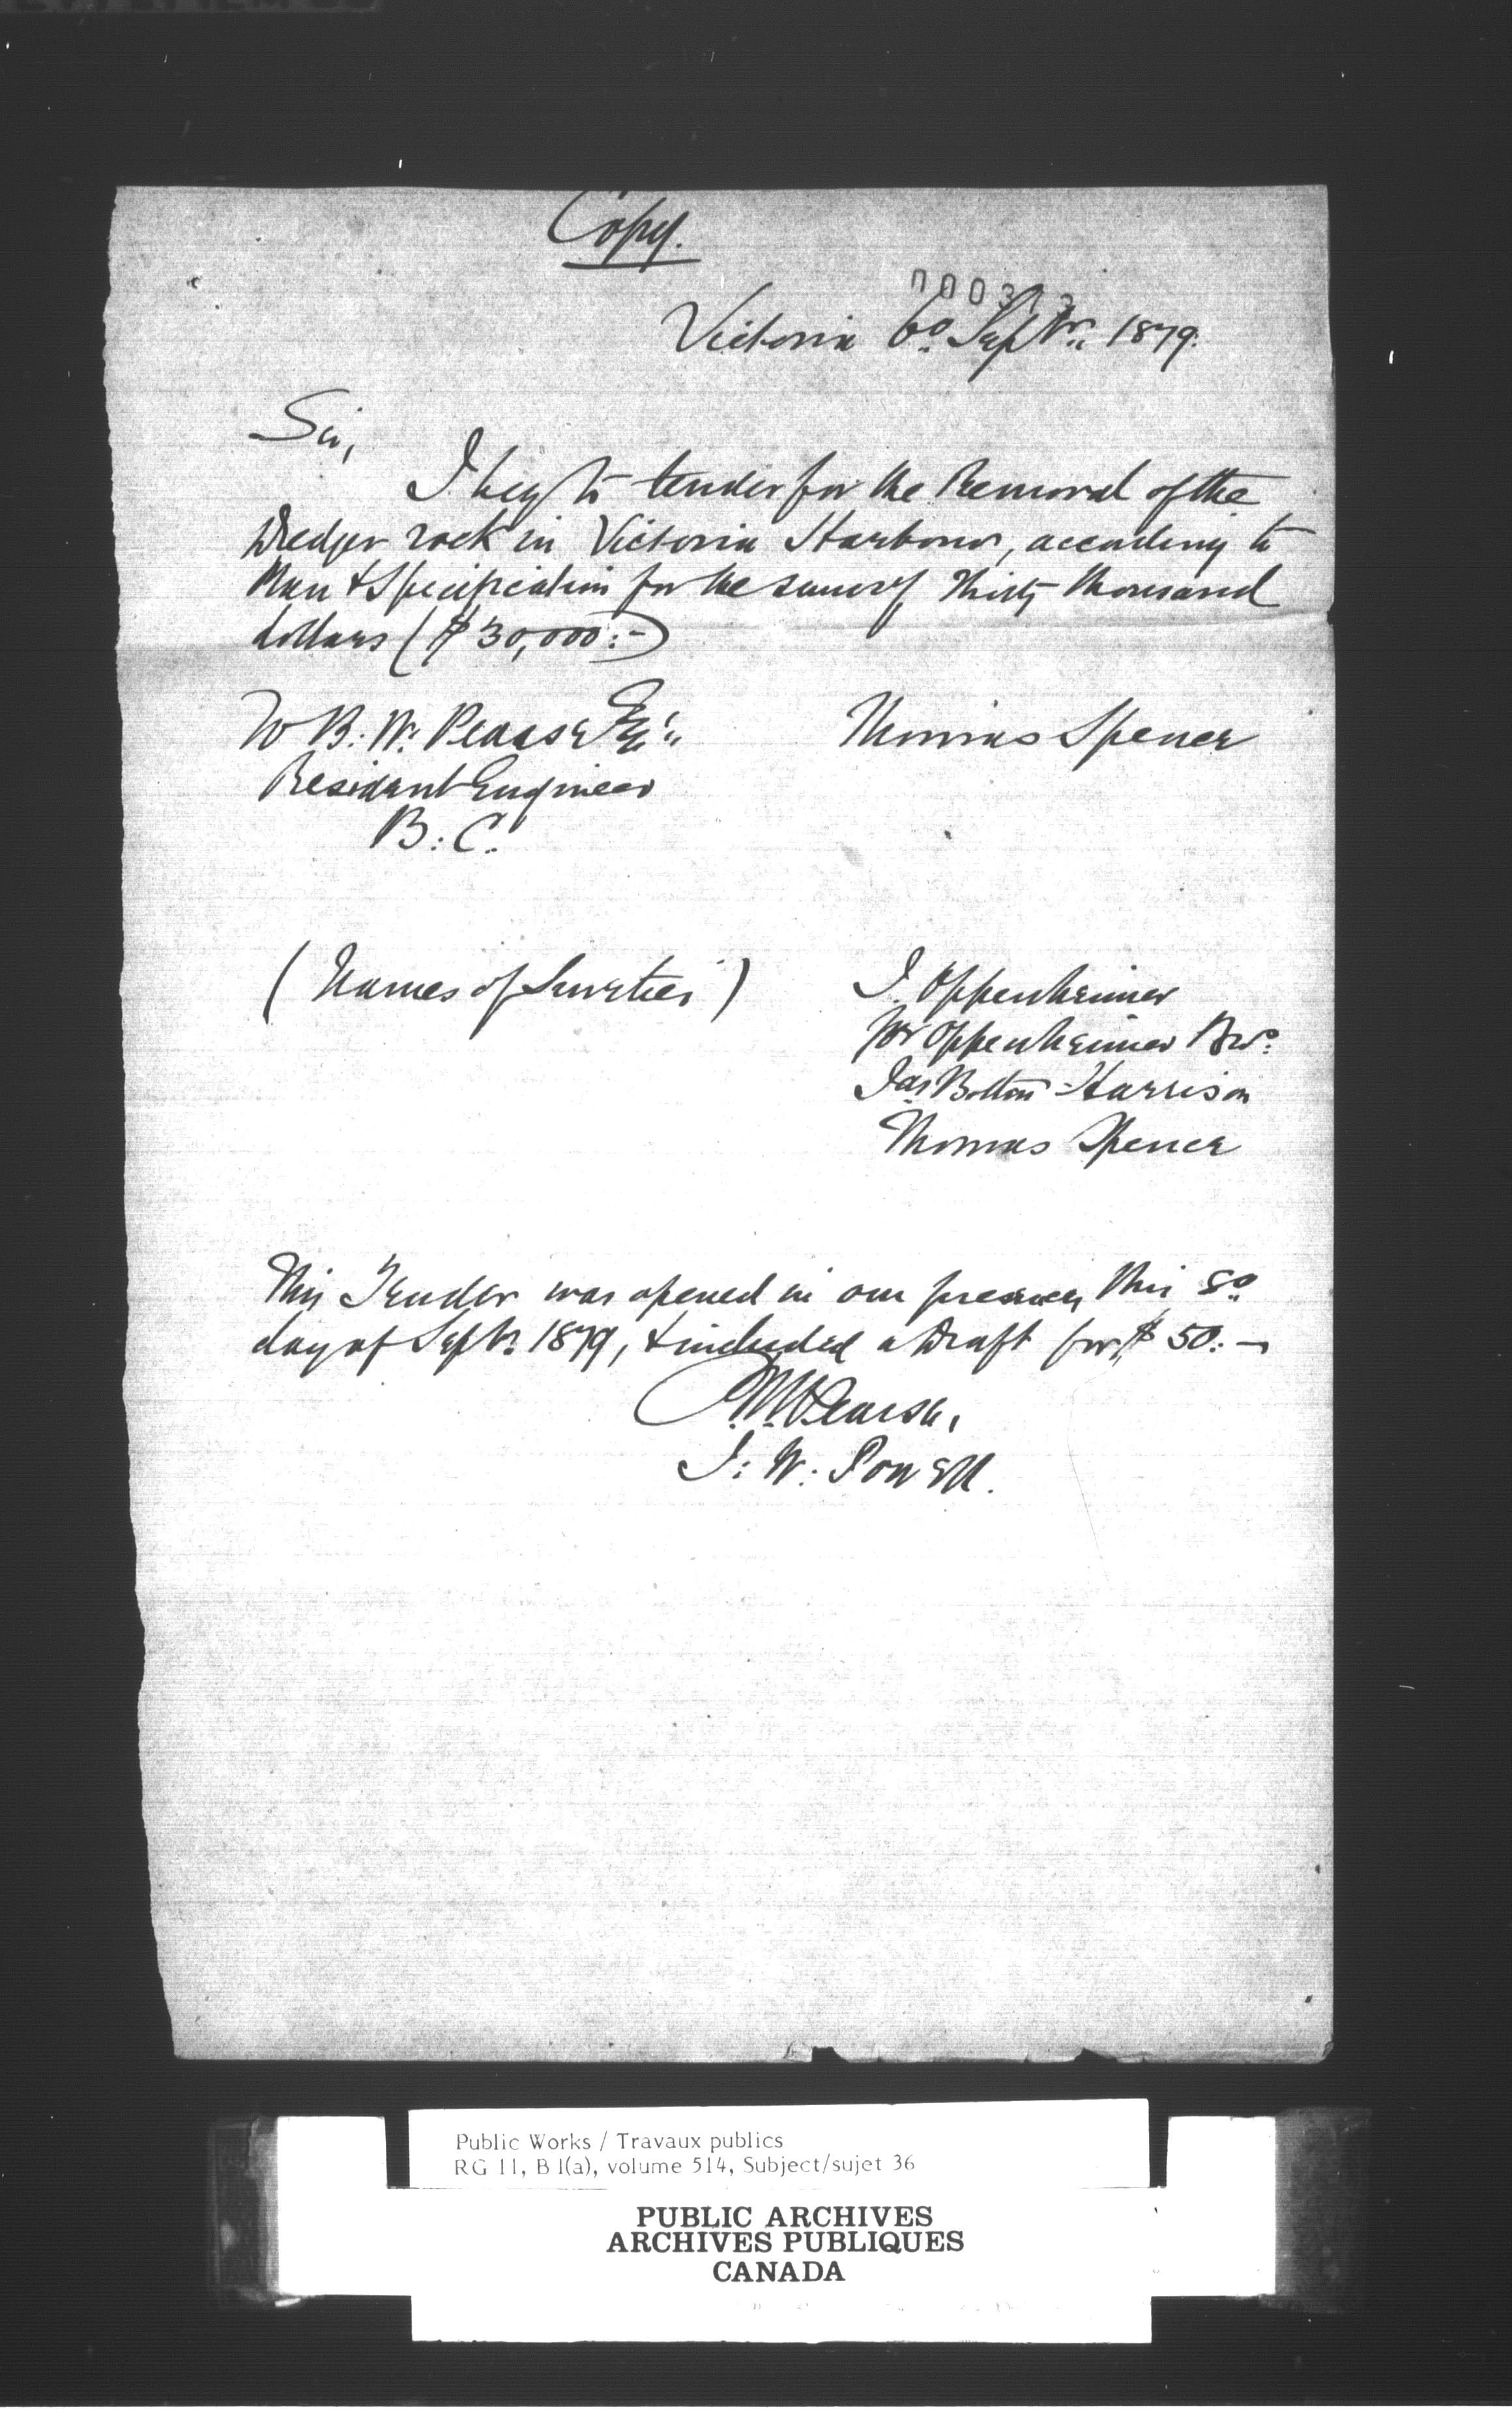 Copy.
Victoria 6o Septr. 1879.
Sir,
I beg to tender for the Removal of the
Dredger rock in Victoria Harbour, according to
Plan & Specification for the sum of Thirty thousand
dollars ($30,000:-)
To B. W. Pearse Esqr.
Thomas Spencer
Resident Engineer
B. C.
(Names of Sureties)
I. Oppenheimer
for Oppenheimer Bros.
Jas Bolton Harrison
Thomas Spencer
This Tender was opened in our presence, this 8o
day of Septr. 1879, & included a Draft for $50.-
B. W. Pearse,
I. W. Powell.
Public Works / Travaux publics
RG 11, B 1(a), volume 514, Subject/sujet 36
PUBLIC ARCHIVES
ARCHIVES PUBLIQUES
CANADA